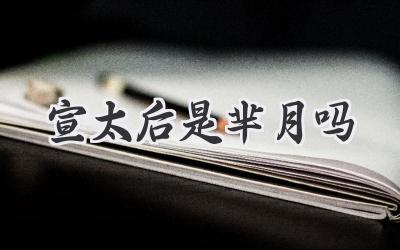 宣太后是芈月吗